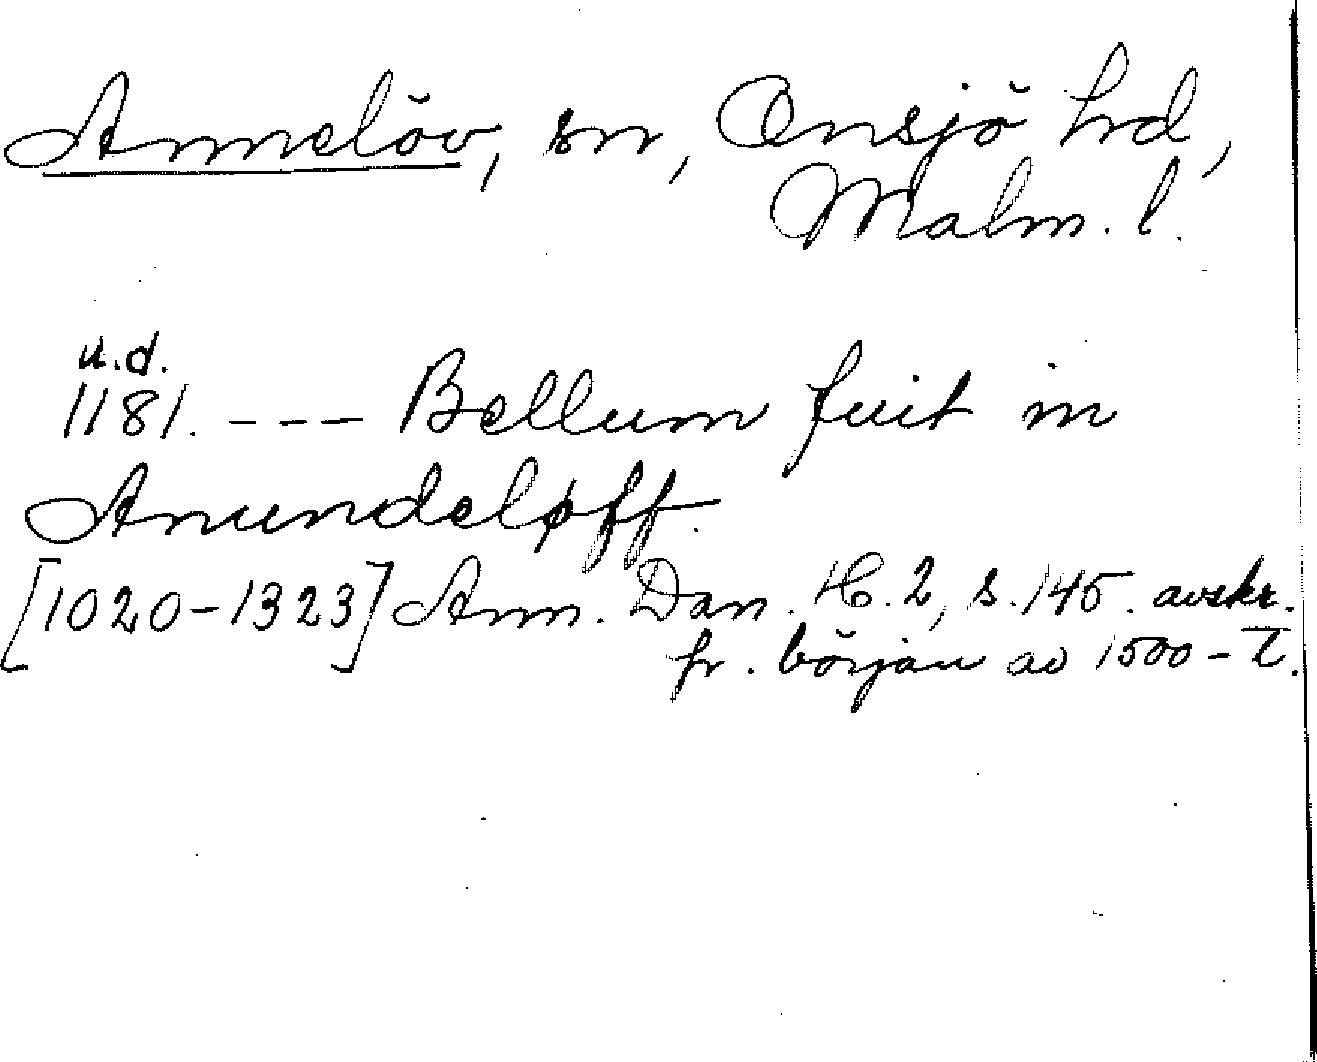 Annelöv, sn, Onsjö hrd,
Malm. l.
u.d.
1181. --- Bellum fuit in
Anundeløff.
[1020-1323] Ann. Dan. H. 2, s. 145. avskr.
fr. början av 1500-t.